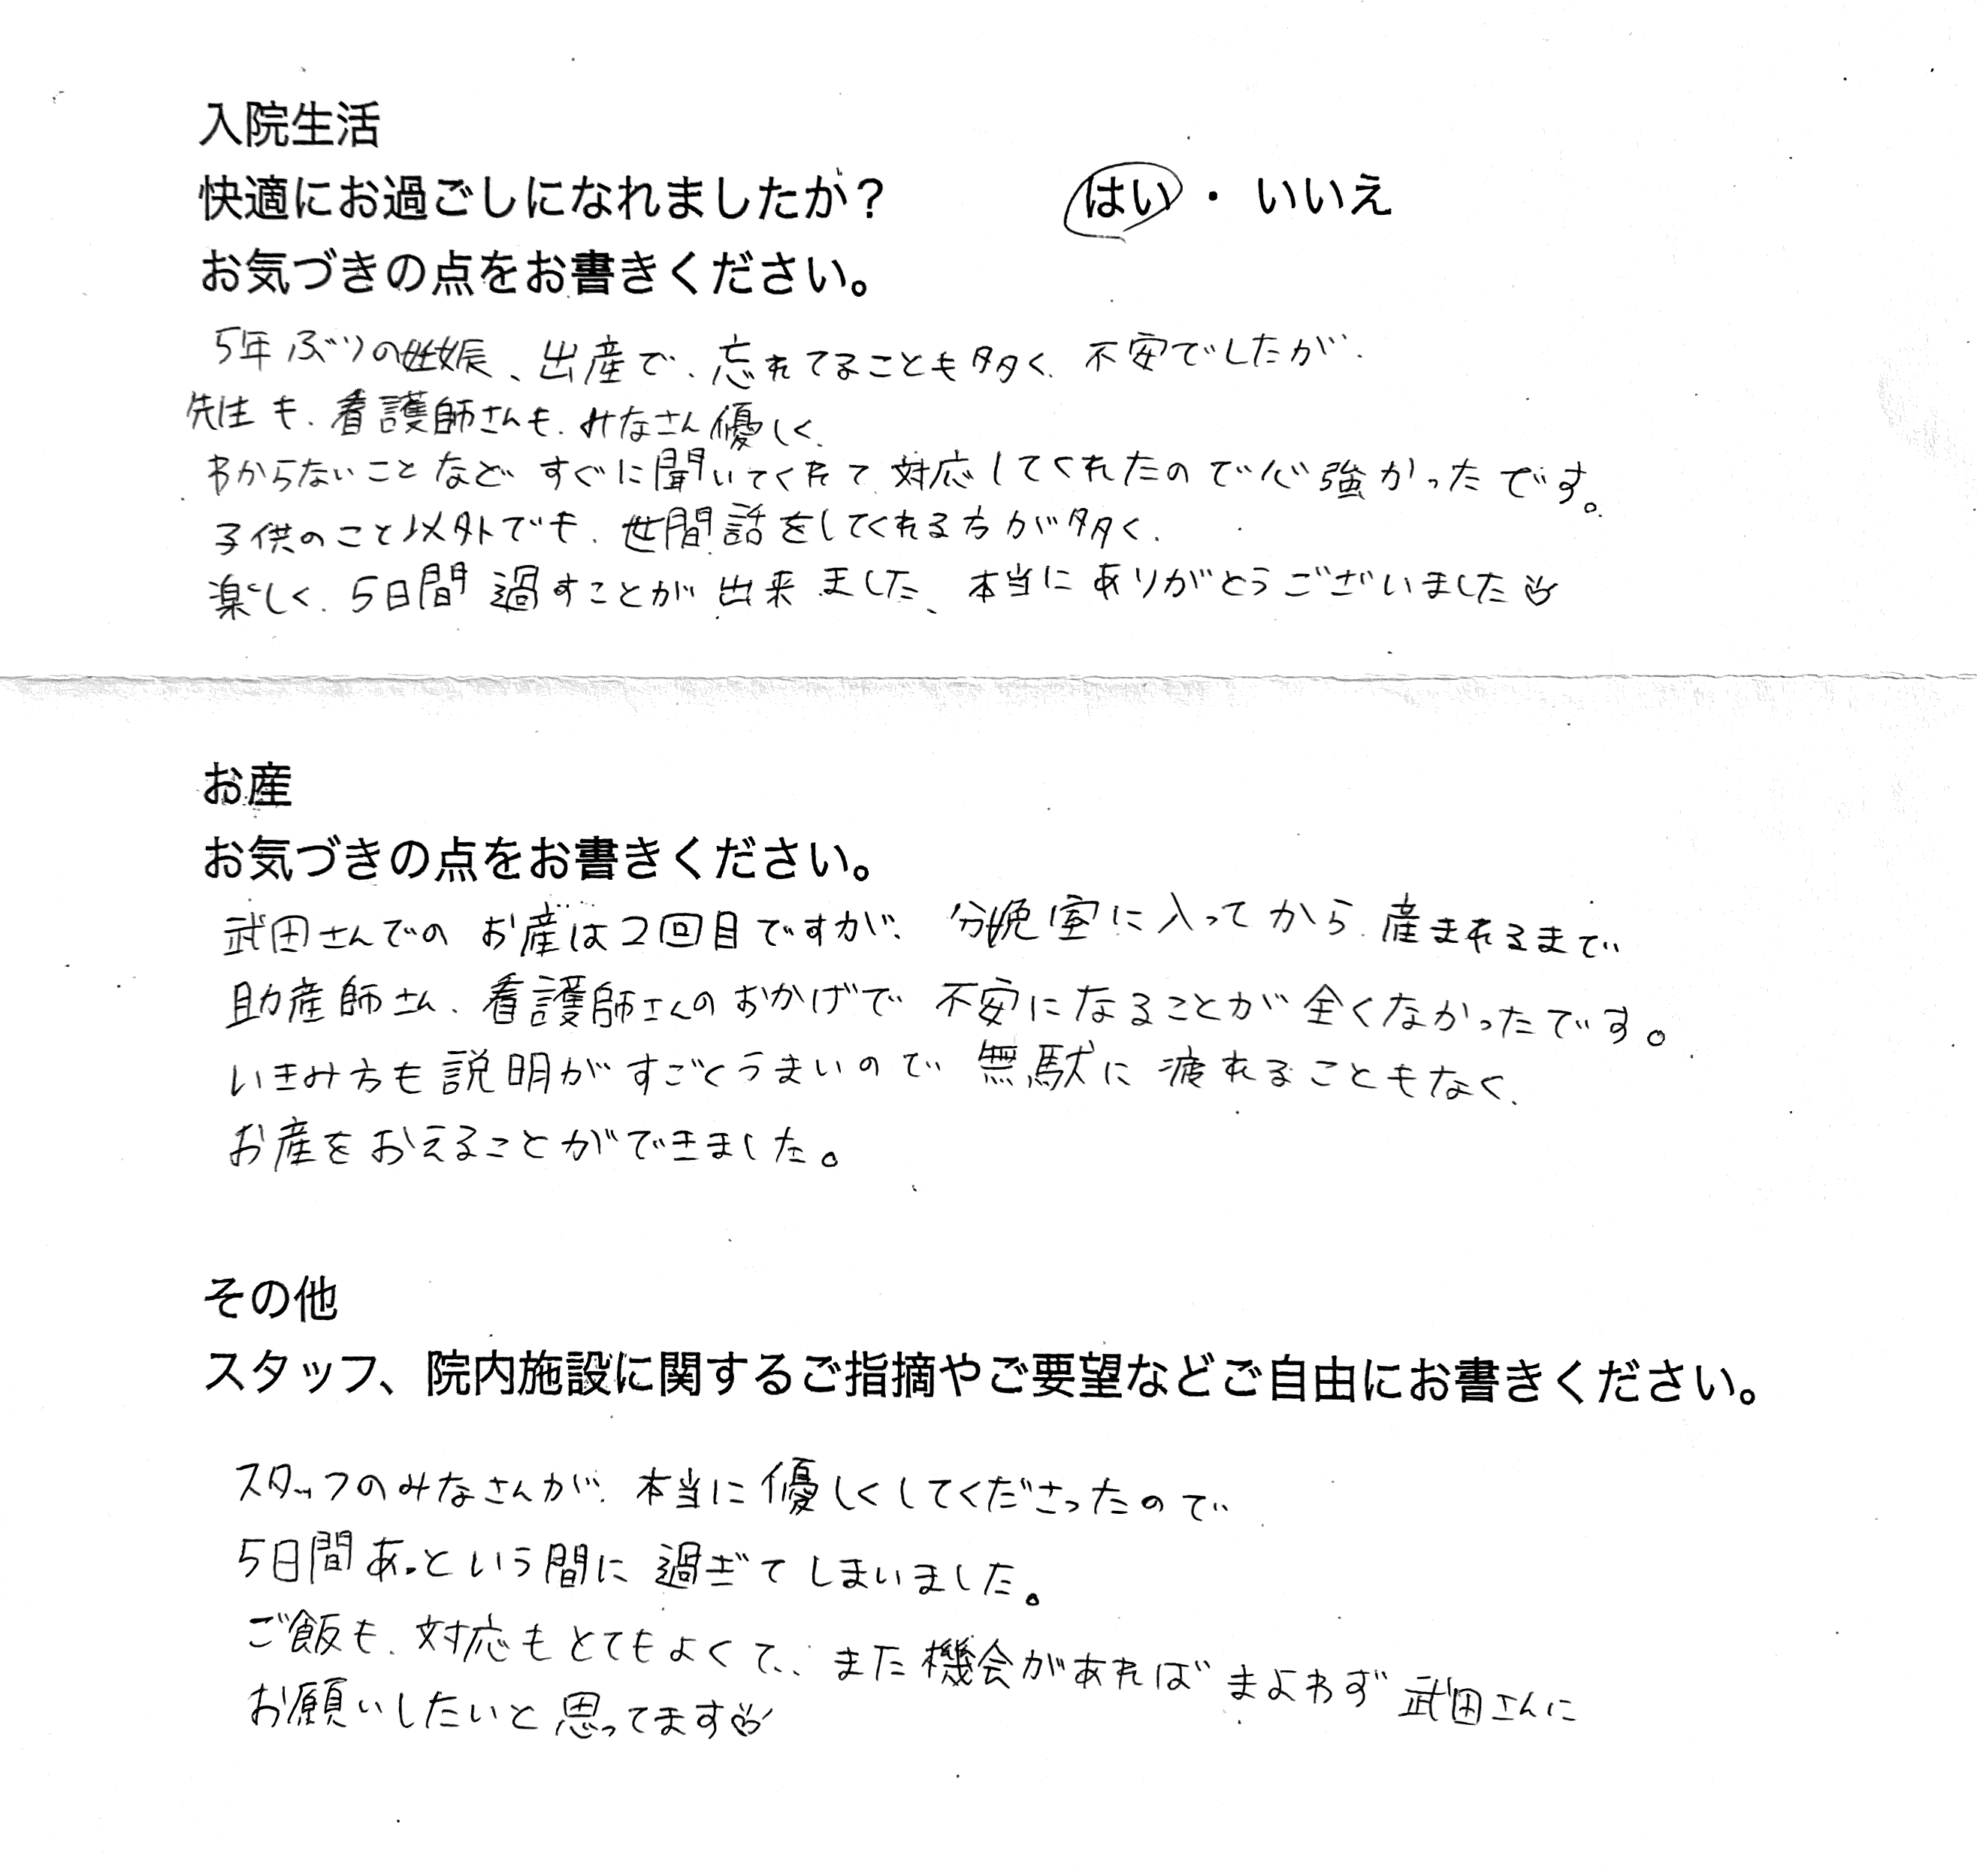 入院生活
快適にお過ごしになれましたか？ はい・いいえ
お気づきの点をお書きください。
5年ぶりの妊娠、出産で、忘れてることも多く、不安でしたが、
先生も、看護師さんも、みなさん優しく、
わからないことなど すぐに聞いてくれて 対応してくれたので心強かったです。
子供のこと以外でも、世間話をしてくれる方が多く、
楽しく、5日間 過すことが 出来ました、本当に ありがとうございました♡
お産
お気づきの点をお書きください。
武田さんでの お産は2回目ですが、分娩室に入ってから 産まれるまで
助産師さん、看護師さんのおかげで 不安になることが 全くなかったです。
いきみ方も 説明がすごくうまいので 無駄に 疲れることもなく、
お産をおえることができました。
その他
スタッフ、院内施設に関するご指摘やご要望などご自由にお書きください。
スタッフのみなさんが、本当に優しくしてくださったので
5日間あっという間に 過ぎてしまいました。
ご飯も、対応もとてもよくて、また機会があれば まよわず 武田さんに
お願いしたいと思ってます♡